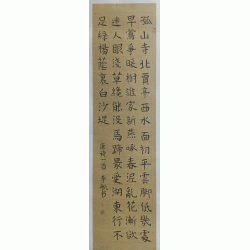 孤山寺北賈亭西水面初平雲脚低幾處
早鶯爭暖樹誰家新燕啄春泥亂花漸欲
迷人眼淺草纔能沒馬蹄最愛湖東行不
足綠楊蔭裏白沙堤
唐詩一首